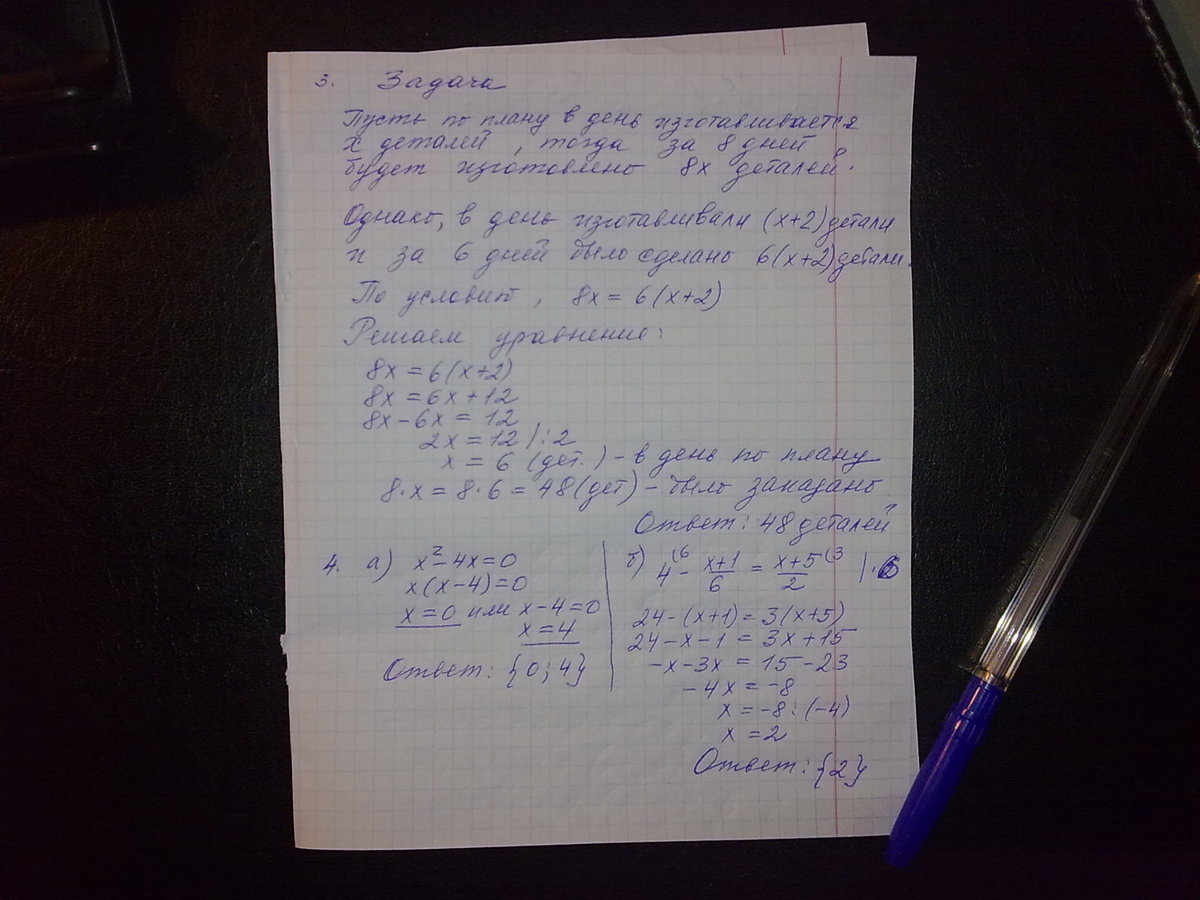 3. Задача
Пусть по плану в день изготавливается
х деталей, тогда за 8 дней
будет изготовлено 8х деталей.
Однако, в день изготавливали (х+2) детали
и за 6 дней было сделано 6(х+2) детали.
По условию, 8х = 6(х+2)
Решаем уравнение:
8х = 6(х+2)
8х = 6х+12
8х-6х = 12
2х = 12 |:2
х = 6 (дет.) - в день по плану
8·х = 8·6 = 48(дет) - было заказано
Ответ: 48 деталей
4. а) х²-4х=0
х(х-4)=0
х=0 или х-4=0
х=4
Ответ: {0;4}
б) 4(6 - х+1/6 = х+5(3/2 |·6
24-(х+1)=3(х+5)
24-х-1 = 3х+15
-х-3х = 15-23
-4х = -8
х = -8:(-4)
х = 2
Ответ: {2}